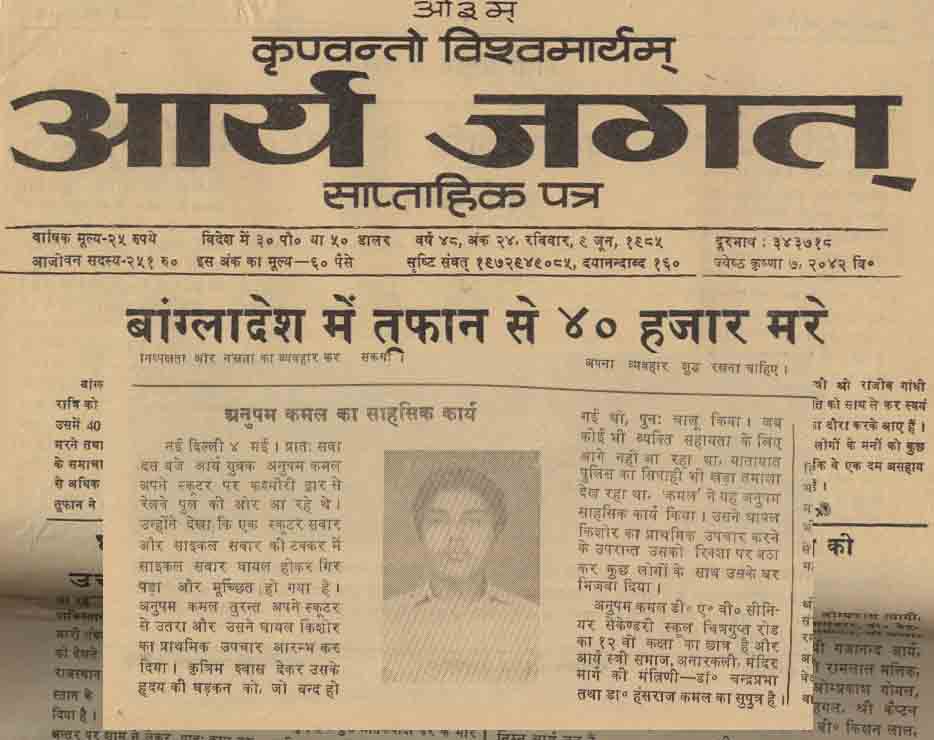 ओ३म्
कृण्वन्तो विश्वमार्यम्
आर्य जगत्
साप्ताहिक पत्र
वार्षिक मूल्य-२५ रुपये विदेश में ३० पौ० या ५० डालर वर्ष ४८, अंक २४, रविवार, ९ जून, १९८५ दूरभाष : ३४३७१८
आजीवन सदस्य-२५१ रु० इस अंक का मूल्य—६० पैसे सृष्टि संवत् १९७२९४९०८५, दयानन्दाब्द १६० ज्येष्ठ कृष्णा ७, २०४२ वि०
बांग्लादेश में तूफान से ४० हजार मरे
निष्पक्षता और नम्रता का व्यवहार कर सकगी।
अपना व्यवहार शुद्ध रखना चाहिए।
बांग्ल
रात्रि को
उसमें 40
मरने तथा
के समाचा
से अधिक
तूफान ने
अनुपम कमल का साहसिक कार्य
नई दिल्ली ४ मई। प्रातः सवा
दस बजे आर्य युवक अनुपम कमल
अपने स्कूटर पर कश्मीरी द्वार से
रेलवे पुल की ओर आ रहे थे।
उन्होंने देखा कि एक स्कूटर सवार
और साइकल सवार की टक्कर में
साइकल सवार घायल होकर गिर
पड़ा और मूर्च्छित हो गया है।
अनुपम कमल तुरन्त अपने स्कूटर
से उतरा और उसने घायल किशोर
का प्राथमिक उपचार आरम्भ कर
दिया। कृत्रिम श्वास देकर उसके
हृदय की धड़कन को, जो बन्द हो
गई थी, पुनः चालू किया। जब
कोई भी व्यक्ति सहायता के लिए
आगे नहीं आ रहा था, यातायात
पुलिस का सिपाही भी खड़ा तमाशा
देख रहा था, 'कमल' ने यह अनुपम
साहसिक कार्य किया। उसने घायल
किशोर का प्राथमिक उपचार करने
के उपरान्त उसको रिक्शा पर बैठा
कर कुछ लोगों के साथ उसके घर
भिजवा दिया।
अनुपम कमल डी० ए० वी० सीनि-
यर सेकेण्डरी स्कूल चित्रगुप्त रोड
का १२ वीं कक्षा का छात्र है और
आर्य स्त्री समाज, अनारकली, मंदिर
मार्ग की मंत्रिणी—डॉ० चन्द्रप्रभा
तथा डा० हंसराज कमल का सुपुत्र है।
त्री श्री राजीव गांधी
ति को साथ ले कर स्वयं
ा दौरा करके आए हैं।
लोगों के मनों को कुछ
कि वे एक दम असहाय
की
को देखते
राजस्थान
स्तान के
दिया है।
री गजानन्द आर्य,
रामलाल मलिक,
ओम्प्रकाश गोयल,
हगल, श्री कैप्टन
वी० किसन लाल,